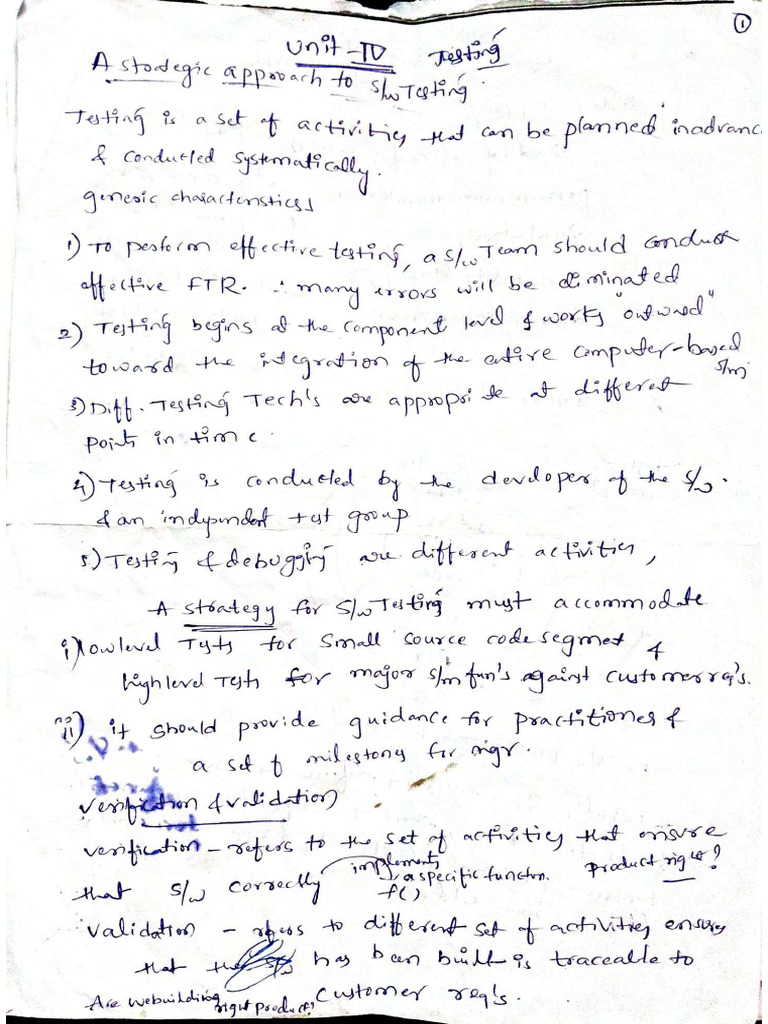 ①
Unit-IV Testing
A strategic approach to S/w Testing.
Testing is a set of activities that can be planned inadvance
& conducted systematically.
generic characteristics
1) To perform effective testing, a S/w Team should conduct
effective FTR. ∴ many errors will be eliminated
2) Testing begins at the component level & works "outward"
toward the integration of the entire computer-based
s/m
3) Diff. Testing Tech's are appropriate at different
points in time.
4) Testing is conducted by the developer of the s/w.
& an independent test group
5.) Testing & debugging are different activities,
A strategy for S/w Testing must accommodate
i) low level Tests for small source code segment &
high level Tests for major s/m fun's against customer req's.
ii) it should provide guidance for practitioner &
a set of milestones for mgr.
verification & validation
verification - refers to the set of activities that ensure
that s/w correctly implements a specific function. product right?
f()
validation - refers to different set of activities ensures
that the s/w has been built is traceable to
customer req's.
Are we building right product?